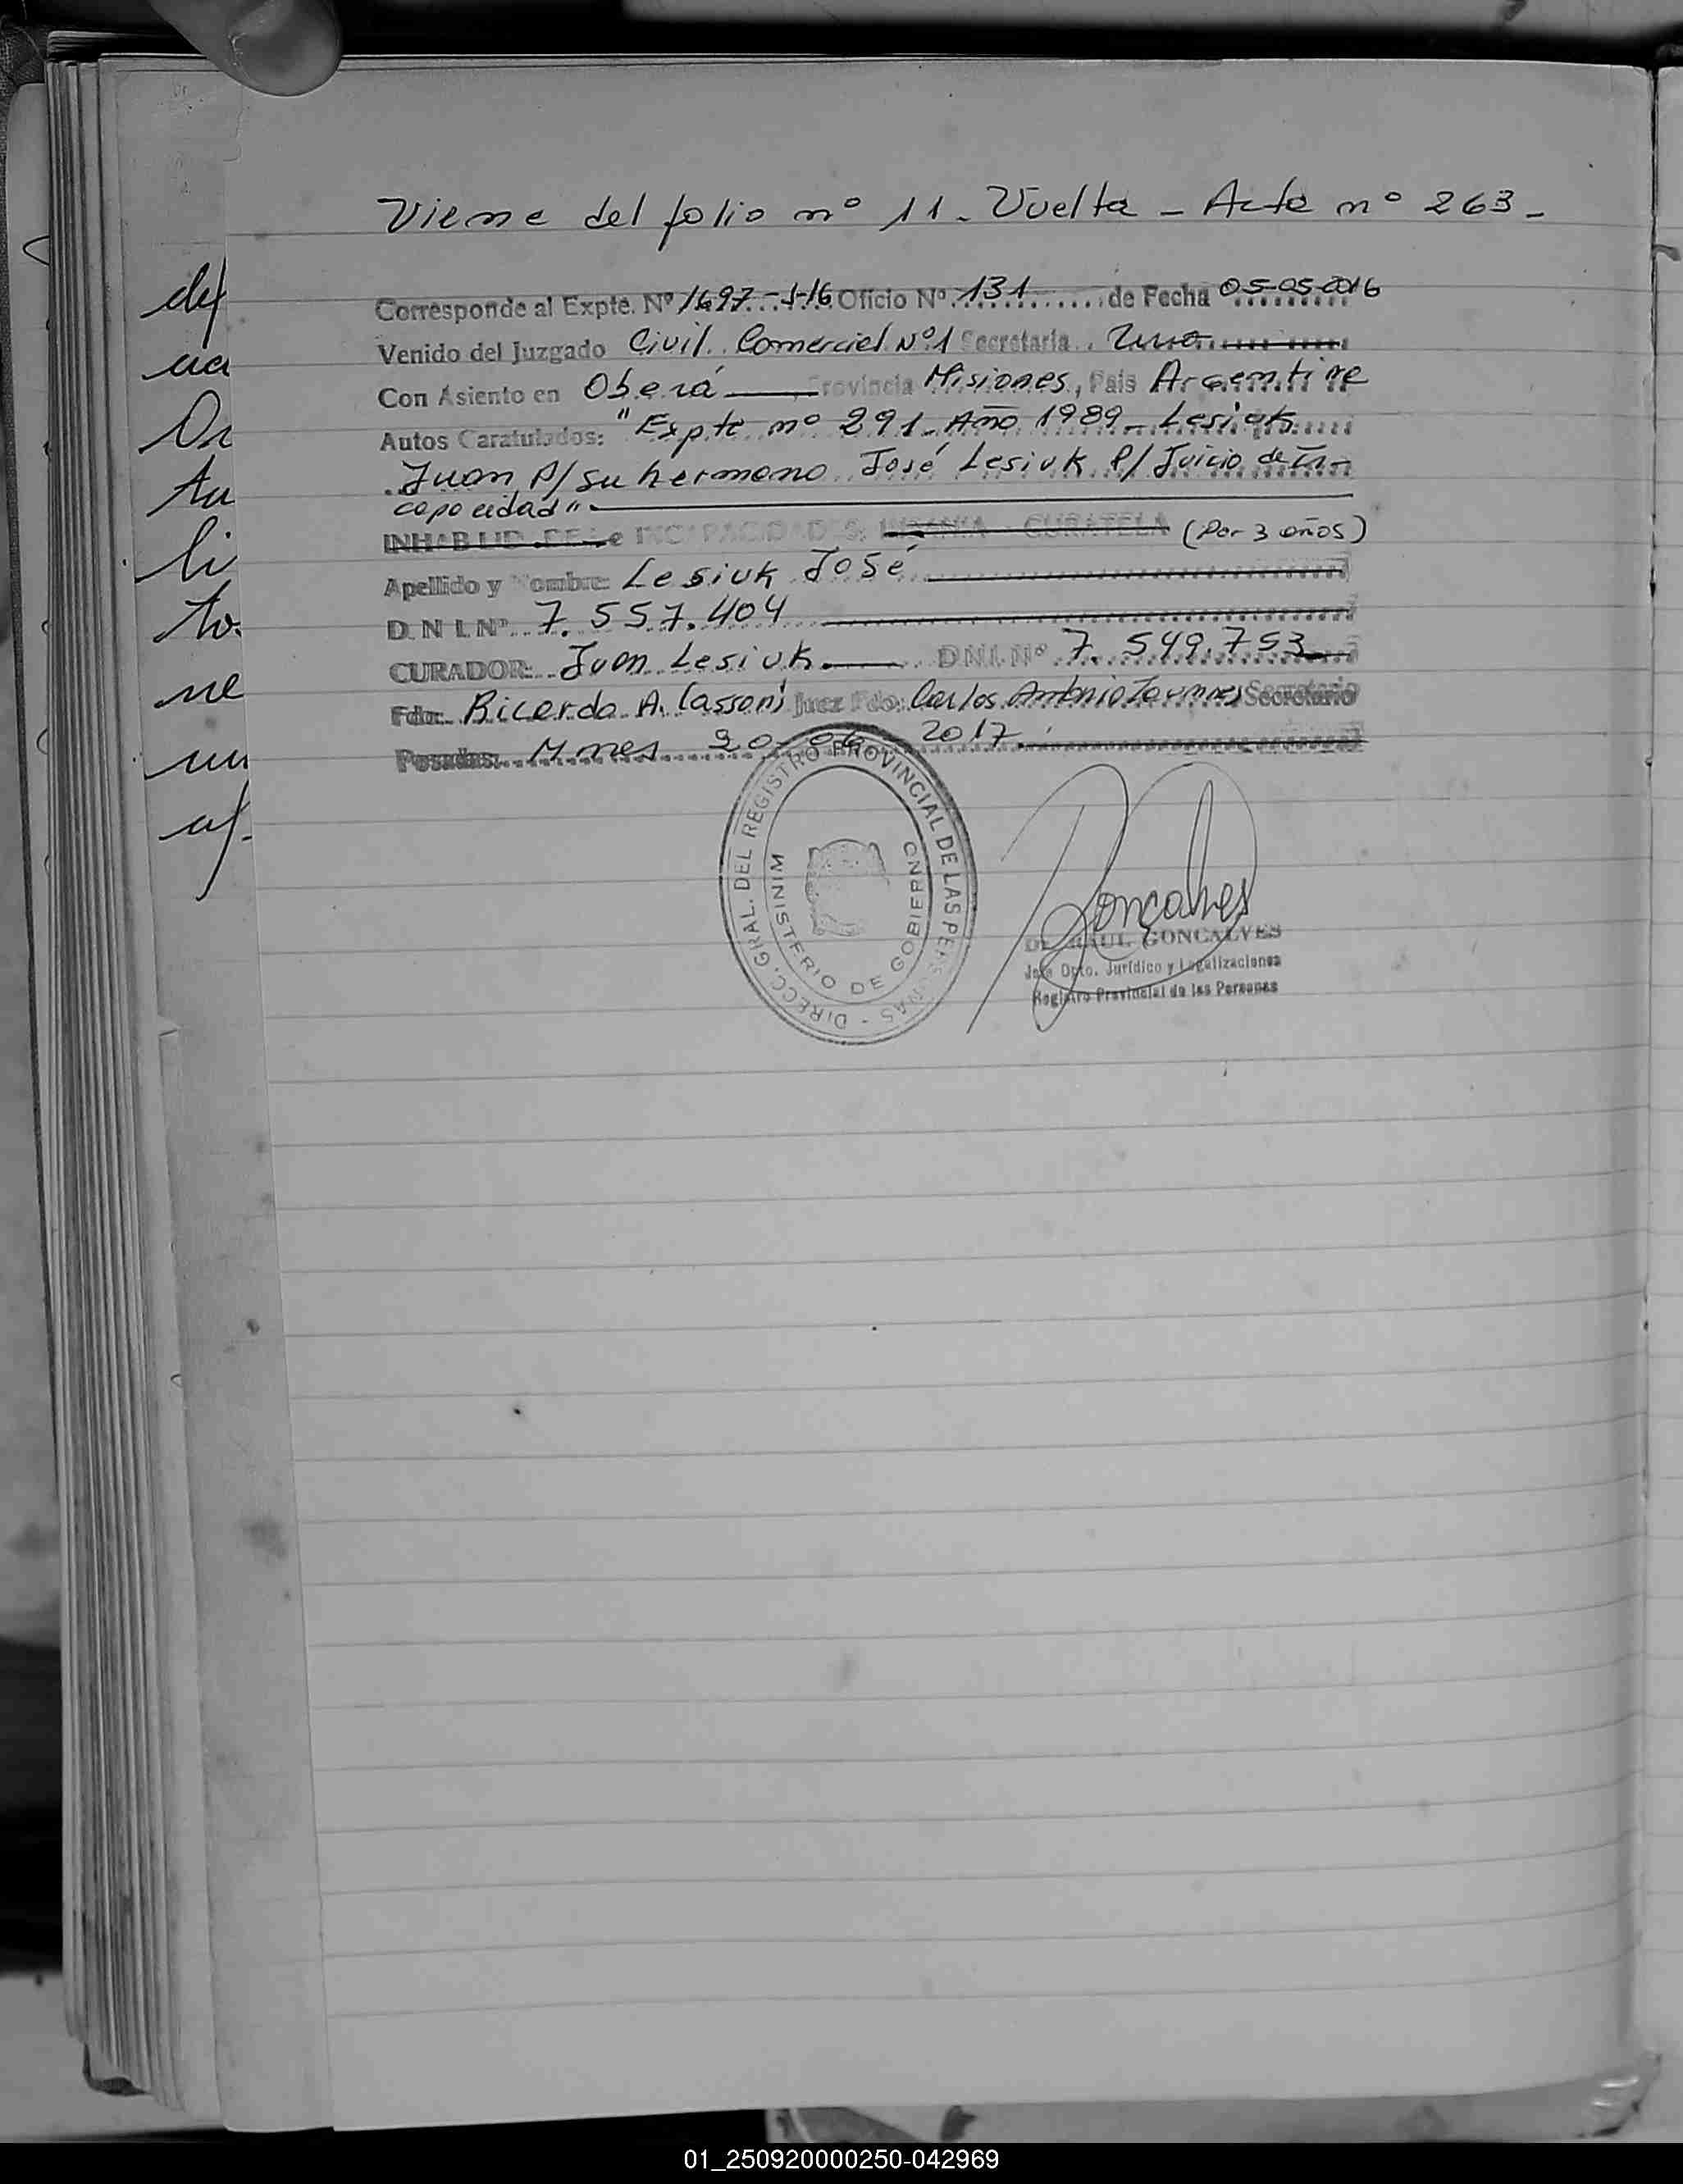 Viene del folio nº 11 - Vuelta - Acta nº 263 -
Corresponde al Expte. Nº 1697-J-16 Oficio Nº 131 de Fecha 05-05-2016
Venido del Juzgado Civil Comercial Nº1 Secretaria Uno
Con Asiento en Oberá Provincia Misiones, País Argentina
Autos Caratulados: "Expte nº 291 - Año 1989 - Lesiuk
Juan P/ su hermano José Lesiuk P/ Juicio de In-
capacidad".
INHABILID. DE INCAPACIDADES: INSANIA - CURATELA (Por 3 años)
Apellido y Nombre: Lesiuk José
D N I. Nº 7.557.404
CURADOR: Juan Lesiuk D.N.I. Nº 7.549.753
Fdo: Ricardo A. Cassoni Juez Fdo: Carlos Antonio Secretario
Posadas: Mnes 20-06-2017.
DIRECC. GRAL. DEL REGISTRO PROVINCIAL DE LAS PERSONAS -
MINISTERIO DE GOBIERNO
Gonçalves
Dr. RAUL GONCALVES
Jefe Dpto. Jurídico y Legalizaciones
Registro Provincial de las Personas
def
ua
ta
li
to.
ne
un
01_250920000250-042969